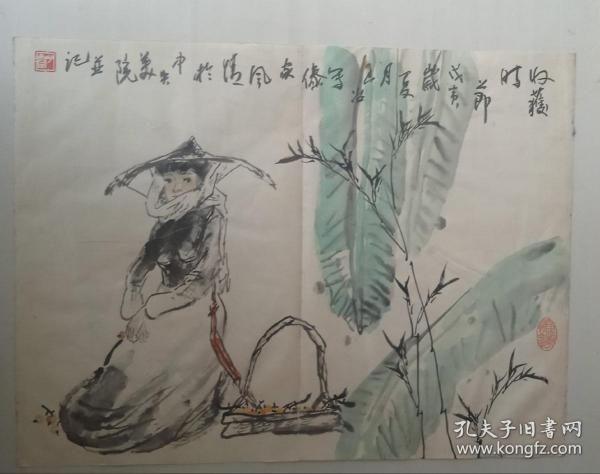 收获
时
节
戊寅
岁
夏
月
写
傣
家
风
情
於
中央
美
院
并
记
孔夫子旧书网
www.kongfz.com